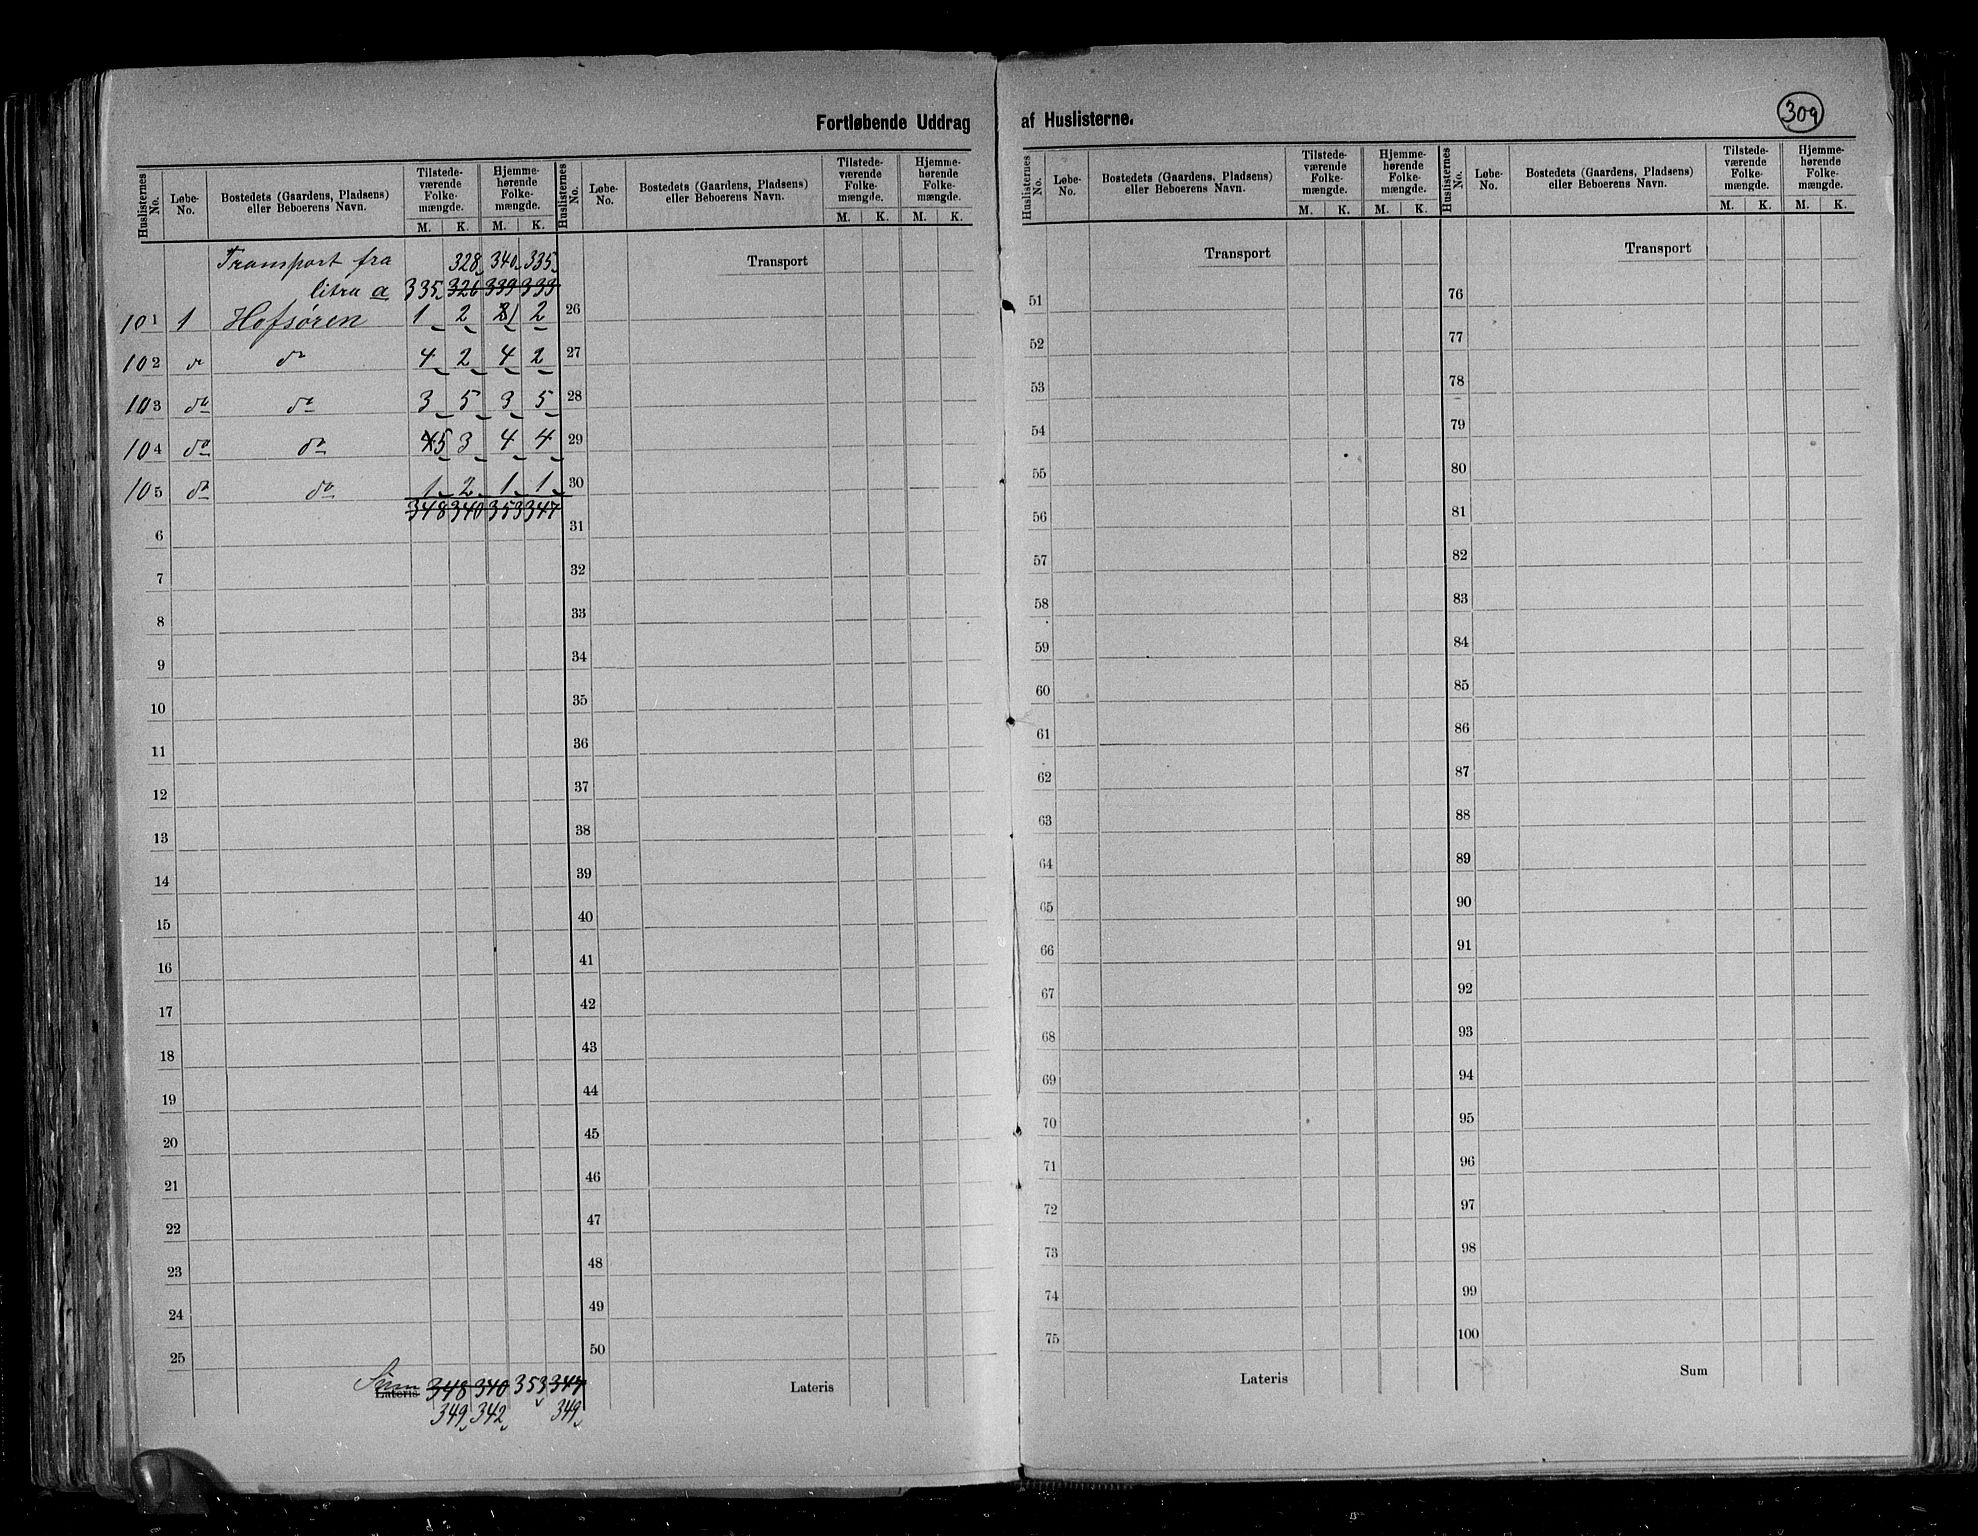 Fortløbende Uddrag af Huslisterne.
309
Huslisternes No. Løbe-No. Bostedets (Gaardens, Pladsens) eller Beboerens Navn. Tilstedeværende Folkemængde. M. K. Hjemmehørende Folkemængde. M. K.
Transport fra 328 340 335
litra a 335 326 339 333
101 1 Hofsøren 1 2 2 1 2
102 do do 4 2 4 2
103 do do 3 5 3 5
104 do do 4 5 3 4 4
105 do do 1 2 1 1
348 340 353 347
6
7
8
9
10
11
12
13
14
15
16
17
18
19
20
21
22
23
24
25
Sum Lateris 348 340 353 347
349 342 349
Huslisternes No. Løbe-No. Bostedets (Gaardens, Pladsens) eller Beboerens Navn. Tilstedeværende Folkemængde. M. K. Hjemmehørende Folkemængde. M. K.
Transport
26
27
28
29
30
31
32
33
34
35
36
37
38
39
40
41
42
43
44
45
46
47
48
49
50
Lateris
Huslisternes No. Løbe-No. Bostedets (Gaardens, Pladsens) eller Beboerens Navn. Tilstedeværende Folkemængde. M. K. Hjemmehørende Folkemængde. M. K.
Transport
51
52
53
54
55
56
57
58
59
60
61
62
63
64
65
66
67
68
69
70
71
72
73
74
75
Lateris
Huslisternes No. Løbe-No. Bostedets (Gaardens, Pladsens) eller Beboerens Navn. Tilstedeværende Folkemængde. M. K. Hjemmehørende Folkemængde. M. K.
Transport
76
77
78
79
80
81
82
83
84
85
86
87
88
89
90
91
92
93
94
95
96
97
98
99
100
Sum